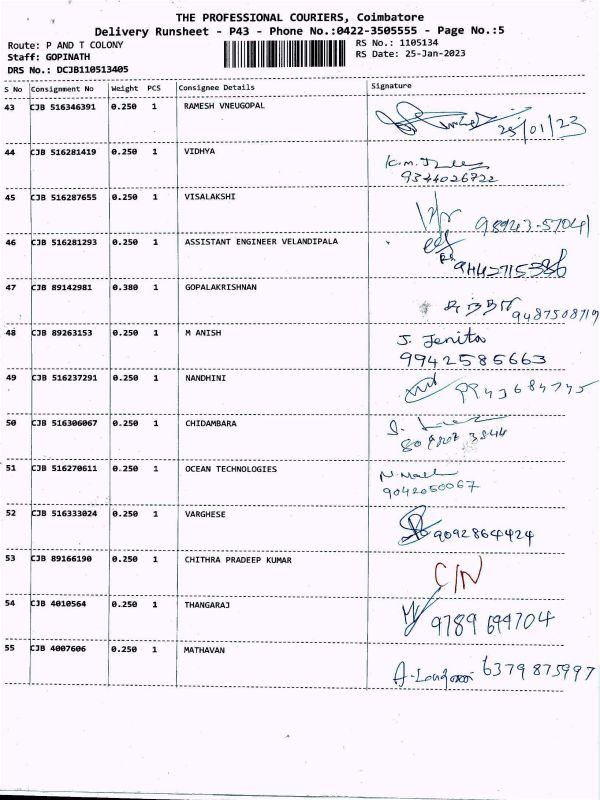 THE PROFESSIONAL COURIERS, Coimbatore
Delivery Runsheet - P43 - Phone No.:0422-3505555 - Page No.:5
Route: P AND T COLONY RS No.: 1105134
Staff: GOPINATH RS Date: 25-Jan-2023
DRS No.: DCJB110513405
S No Consignment No Weight PCS Consignee Details Signature
43 CJB 516346391 0.250 1 RAMESH VNEUGOPAL
25/01/23
44 CJB 516281419 0.250 1 VIDHYA
9344026722
45 CJB 516287655 0.250 1 VISALAKSHI
98943.57041
46 CJB 516281293 0.250 1 ASSISTANT ENGINEER VELANDIPALA
9442715386
47 CJB 89142981 0.380 1 GOPALAKRISHNAN
9487508719
48 CJB 89263153 0.250 1 M ANISH J. Jenita
9942585663
49 CJB 516237291 0.250 1 NANDHINI
9943684745
50 CJB 516306067 0.250 1 CHIDAMBARA
51 CJB 516270611 0.250 1 OCEAN TECHNOLOGIES
9042050067
52 CJB 516333024 0.250 1 VARGHESE
9092864424
53 CJB 89166190 0.250 1 CHITHRA PRADEEP KUMAR
C/N
54 CJB 4010564 0.250 1 THANGARAJ
9789 694704
55 CJB 4007606 0.250 1 MATHAVAN
6379875997